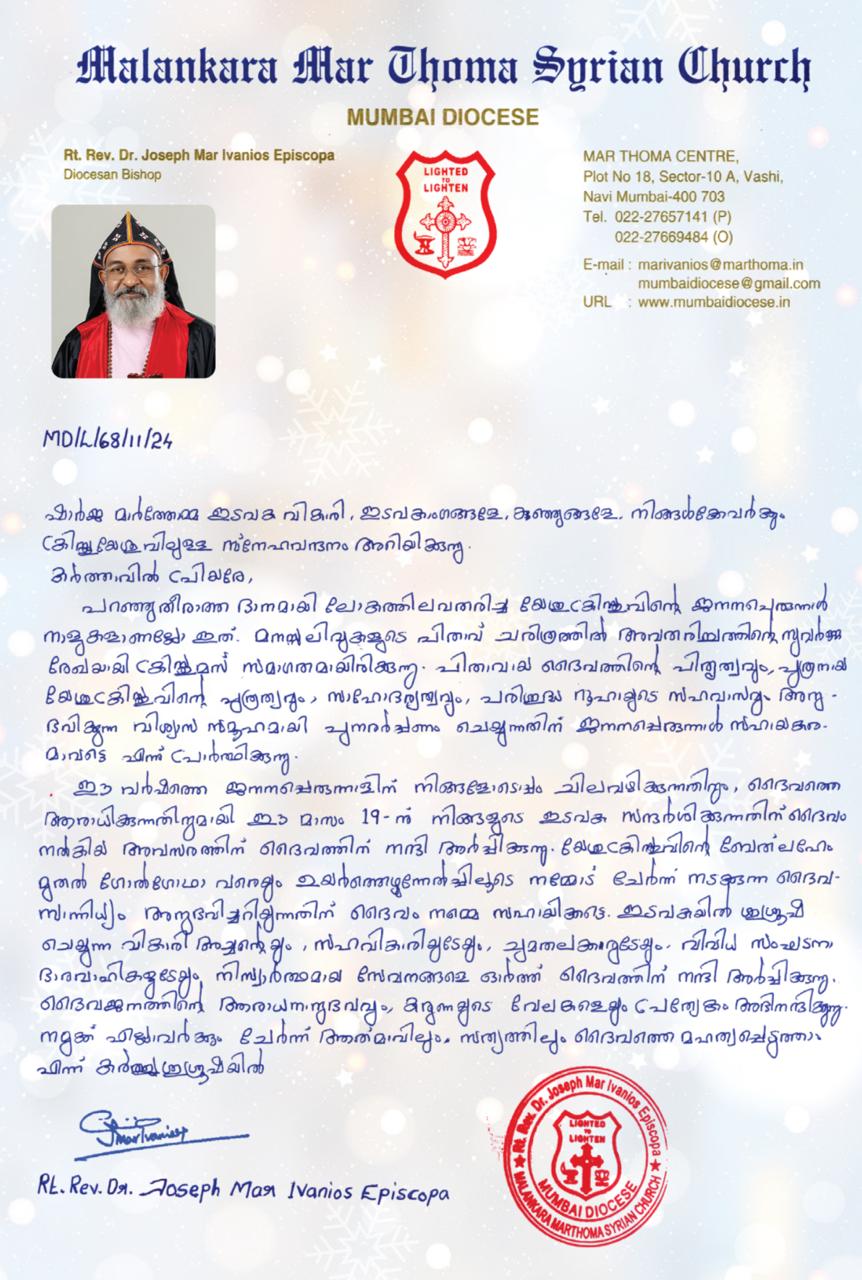 Malankara Mar Thoma Syrian Church
MUMBAI DIOCESE
Rt. Rev. Dr. Joseph Mar Ivanios Episcopa
Diocesan Bishop
LIGHTED
TO
LIGHTEN
MAR THOMA CENTRE,
Plot No 18, Sector-10 A, Vashi,
Navi Mumbai-400 703
Tel. 022-27657141 (P)
022-27669484 (O)
E-mail : marivanios@marthoma.in
mumbaidiocese@gmail.com
URL : www.mumbaidiocese.in
MD/L/68/11/24
ഷാർജ മാർത്തോമ്മ ഇടവക വികാരി, ഇടവകാംഗങ്ങളേ, കുഞ്ഞുങ്ങളേ, നിങ്ങൾക്കേവർക്കും
ക്രിസ്തുയേശുവിലുള്ള സ്നേഹവന്ദനം അറിയിക്കുന്നു.
കർത്താവിൽ പ്രിയരേ,
പറഞ്ഞുതീരാത്ത ദാനമായി ലോകത്തിലവതരിച്ച യേശുക്രിസ്തുവിന്റെ ജനനപ്പെരുന്നാൾ
നാളുകളാണല്ലോ ഇത്. മനസ്സലിവുകളുടെ പിതാവ് ചരിത്രത്തിൽ അവതരിച്ചതിന്റെ സുവർണ്ണ
രേഖയായി ക്രിസ്തുമസ് സമാഗതമായിരിക്കുന്നു. പിതാവായ ദൈവത്തിന്റെ പിതൃത്വവും, പുത്രനായ
യേശുക്രിസ്തുവിന്റെ പുത്രത്വവും, സാഹോദര്യത്വവും, പരിശുദ്ധ റൂഹായുടെ സഹവാസവും അനു-
ഭവിക്കുന്ന വിശ്വാസ സമൂഹമായി പുനരർപ്പണം ചെയ്യുന്നതിന് ജനനപ്പെരുന്നാൾ സഹായകര-
മാവട്ടെ എന്ന് പ്രാർത്ഥിക്കുന്നു.
ഈ വർഷത്തെ ജനനപ്പെരുന്നാളിന് നിങ്ങളോടൊപ്പം ചിലവഴിക്കുന്നതിനും, ദൈവത്തെ
ആരാധിക്കുന്നതിനുമായി ഈ മാസം 19-ന് നിങ്ങളുടെ ഇടവക സന്ദർശിക്കുന്നതിന് ദൈവം
നൽകിയ അവസരത്തിന് ദൈവത്തിന് നന്ദി അർപ്പിക്കുന്നു. യേശുക്രിസ്തുവിന്റെ ബേത്‌ലഹേം
മുതൽ ഗോൽഗോഥാ വരെയും ഉയർത്തെഴുന്നേൽപ്പിലൂടെ നമ്മോട് ചേർന്ന് നടക്കുന്ന ദൈവ-
സാന്നിധ്യം അനുഭവിച്ചറിയുന്നതിന് ദൈവം നമ്മെ സഹായിക്കട്ടെ. ഇടവകയിൽ ശുശ്രൂഷ
ചെയ്യുന്ന വികാരി അച്ചന്റെയും, സഹവികാരിയുടേയും, ചുമതലക്കാരുടേയും, വിവിധ സംഘടനാ
ഭാരവാഹികളുടേയും നിസ്വാർത്ഥമായ സേവനങ്ങളെ ഓർത്ത് ദൈവത്തിന് നന്ദി അർപ്പിക്കുന്നു.
ദൈവജനത്തിന്റെ ആരാധനാനുഭവവും, കരുണയുടെ വേലകളെയും പ്രത്യേകം അഭിനന്ദിക്കുന്നു.
നമുക്ക് എല്ലാവർക്കും ചേർന്ന് ആത്മാവിലും, സത്യത്തിലും ദൈവത്തെ മഹത്വപ്പെടുത്താം
എന്ന് കർത്തൃശുശ്രൂഷയിൽ
Rt. Rev. Dr. Joseph Mar Ivanios Episcopa
Rt. Rev. Dr. Joseph Mar Ivanios Episcopa
LIGHTED
TO
LIGHTEN
MUMBAI DIOCESE
MALANKARA MARTHOMA SYRIAN CHURCH